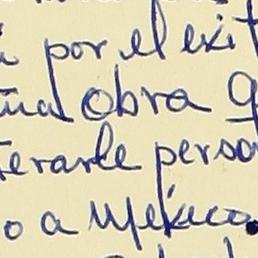 por el exit
obra
erarle perso
o a Mexico.